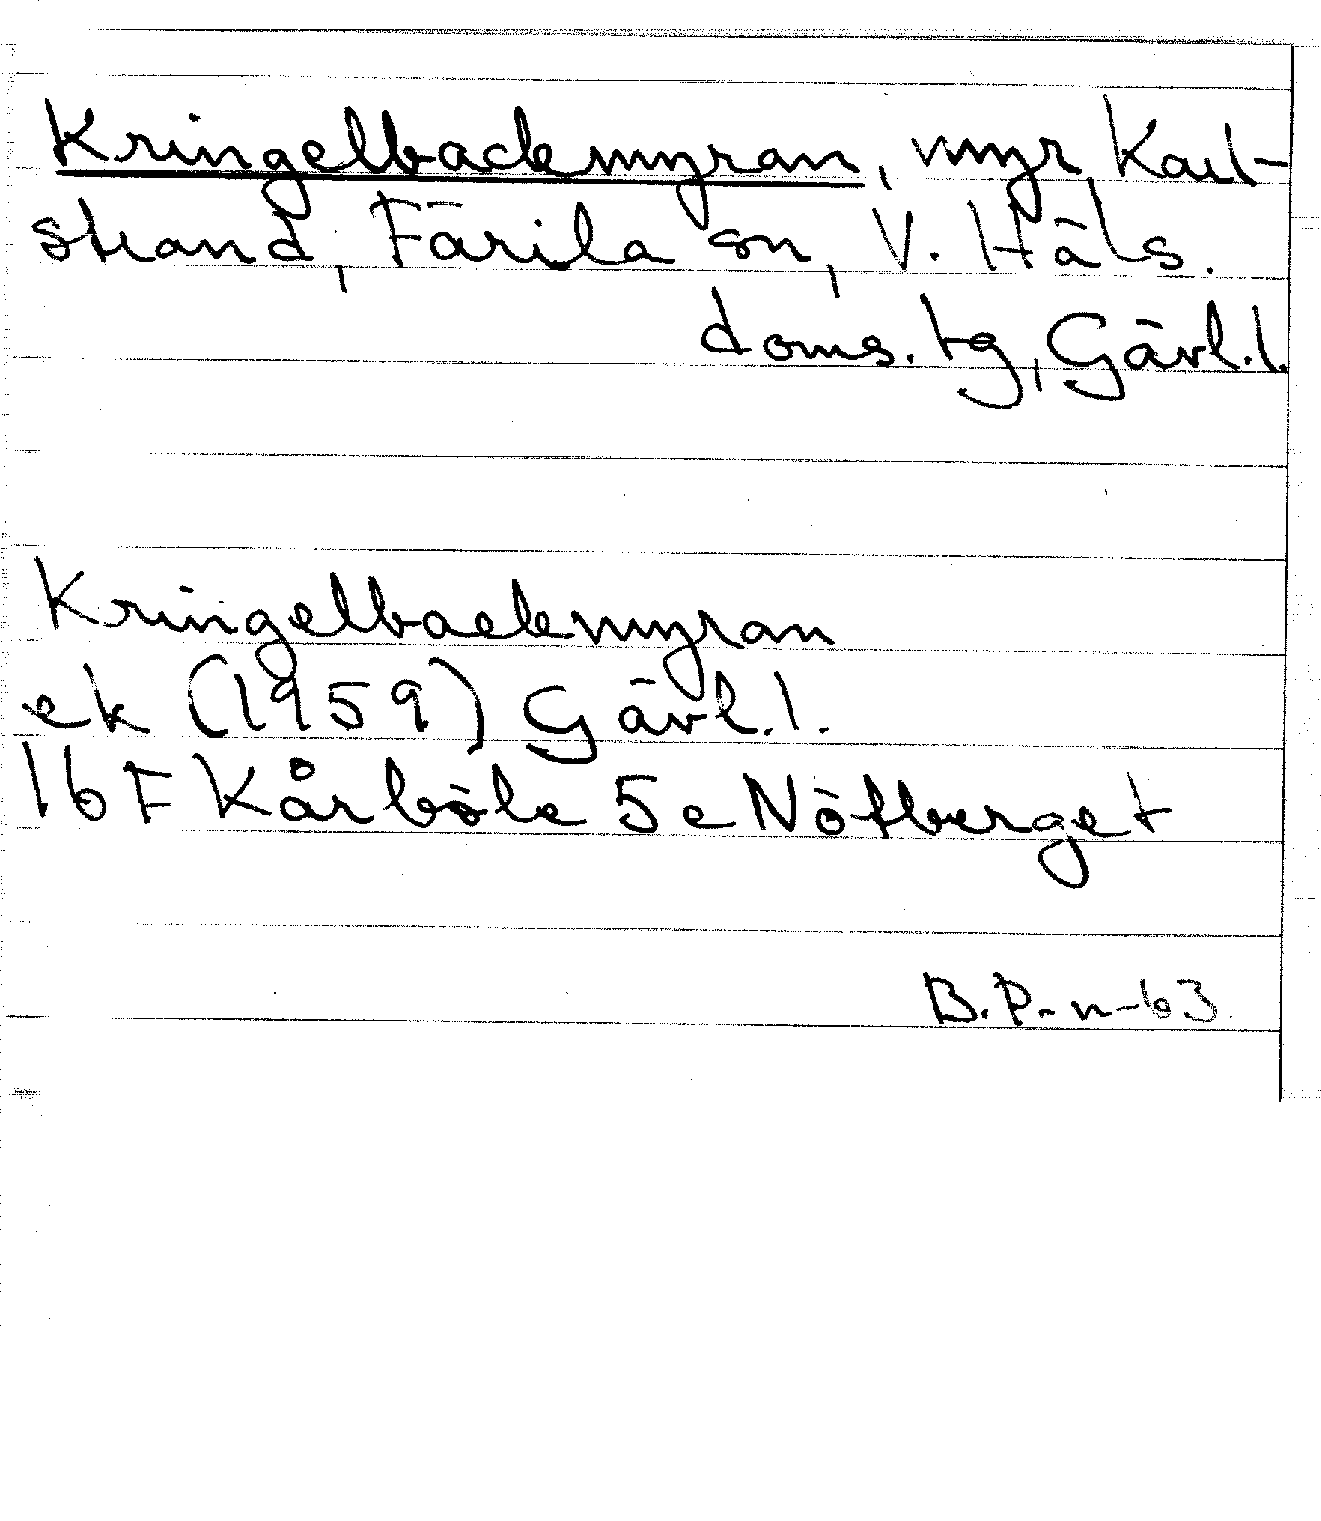 Kringelbackmyran, myr, Karl-
strand, Färila sn, V. Häls.
doms. tg, Gävl. l.
Kringelbackmyran
ek (1959) Gävl. l.
16 F Kårböle 5 e Nötberget
B.P-n-63